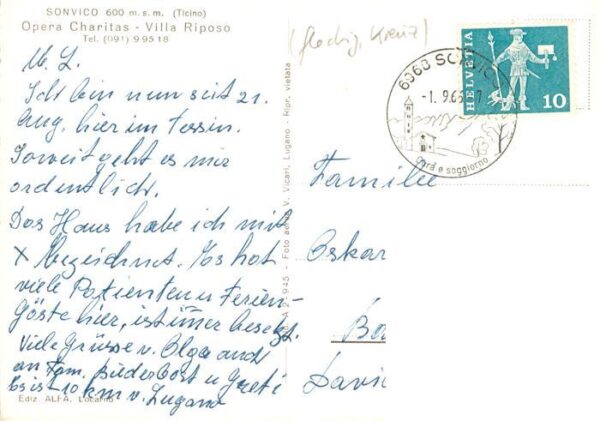 SONVICO 600 m. s. m. (Ticino)
Opera Charitas - Villa Riposo
Tel. (091) 9 95 18
M. L.
Ich bin nun seit 21.
Aug. hier im Tessin.
Soweit geht es mir
ordentlich.
Das Haus habe ich mit
x bezeichnet. Es hat
viele Patienten u Ferien-
gäste hier, ist imer besetzt.
Viele Grüsse v. Olga auch
an Fam. u Greti
es ist 10 km v. Lugano
Ediz. ALFA, Locarno
945 - Foto aerea V. Vicari, Lugano - Ripr. vietata
6968 SONVICO
-1. 9.65
Cura e soggiorno
HELVETIA
10
Familie
Oskar